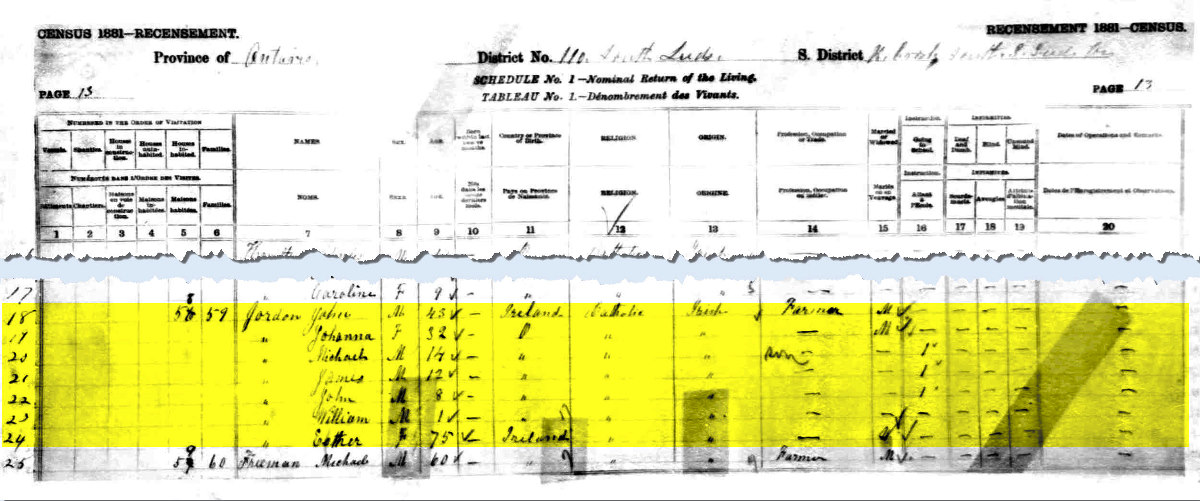 CENSUS 1881—RECENSEMENT. RECENSEMENT 1881—CENSUS.
Province of Ontario District No. 110 South S. District
SCHEDULE No. 1—Nominal Return of the Living.
PAGE 13 TABLEAU No. 1.—Dénombrement des Vivants. PAGE 13
NUMBERED IN THE ORDER OF VISITATION NAMES SEX. AGE. Born within last twelve months. Country or Province of Birth. RELIGION. ORIGIN. Profession, Occupation or Trade. Married or Widowed. Instruction. Going to School. INFIRMITIES. Deaf and Dumb. Blind. Unsound Mind. Dates of Operations and Remarks.
Vessels. Shanties. Houses in construction. Houses uninhabited. Houses inhabited. Families.
NUMÉROTÉS DANS L'ORDRE DES VISITES. NOMS. SEXE. Pays ou Province de Naissance. RELIGION. ORIGINE. Profession, Occupation ou Métier. Mariés ou en Veuvage. Instruction. Allant à l'École. INFIRMITÉS. Sourds-muets. Aveugles. Dates de l'Enregistrement et Observations.
Bâtiments. Chantiers. Maisons en voie de construction. Maisons inhabitées. Maisons habitées. Familles.
1 2 3 4 5 6 7 8 9 10 11 12 13 14 15 16 17 18 19 20
17 " Caroline F 9 — " " " —
18 58 59 Jordon John M 43 — Ireland Catholic Irish Farmer M — — — —
19 " Johanna F 32 — O " " — M — — — —
20 " Michael M 14 — " " " 1 — — —
21 " James M 12 — " " " — 1 — — —
22 " John M 8 — " " " — 1 — — —
23 " William M 1 — " " " — — — — —
24 " Esther F 75 — Ireland " " — — — — —
25 59 60 Freeman Michael M 60 — " " " Farmer M — — — —